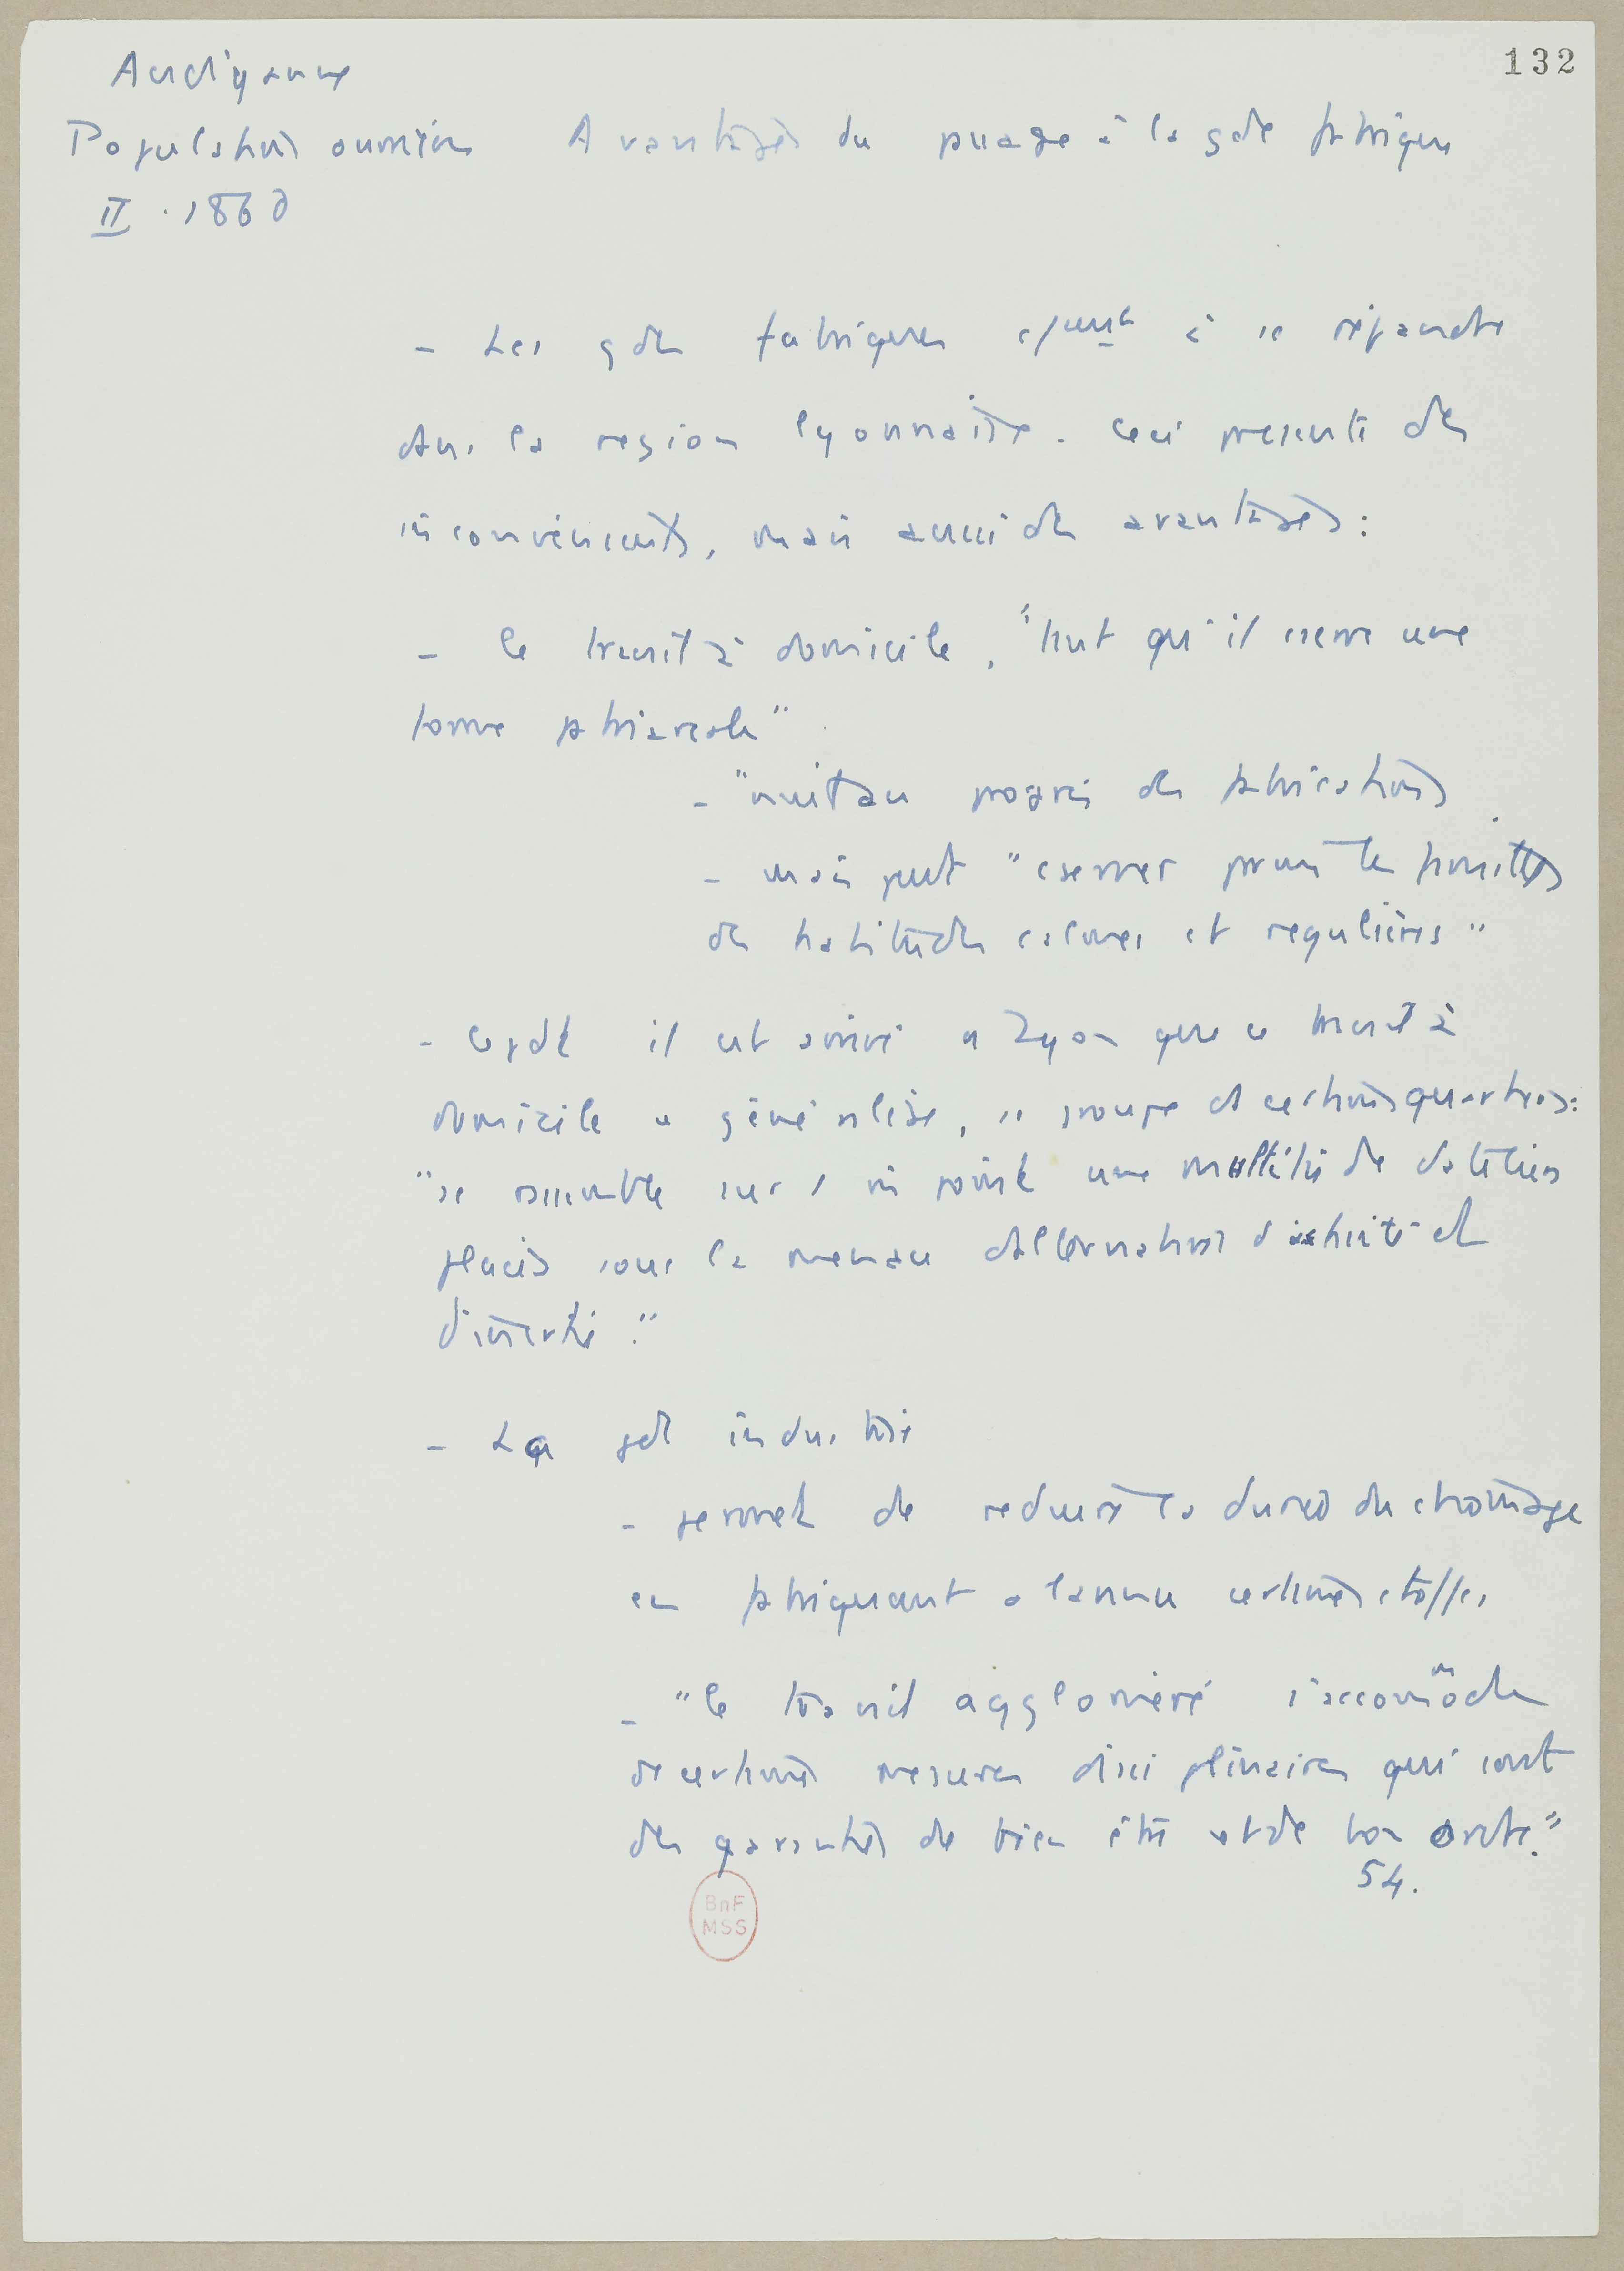 132
Audiganne
Populations ouvrières Avantages du passage à la gde fabrique
II . 1860
- Les gdes fabriques à se répandre
dans la region lyonnaise. Ceci presente des
inconvénients, mais aussi des avantages:
- le travail à domicile, "tant qu'il reste une
forme"
- "nuit au progrès des fabrications
- mais peut "conserver parmi les familles
des habitudes calmes et regulières"
- Cepdt il est arrivé a Lyon que ce travail à
domicile se généralise, se groupe ds certains quartiers:
"se rassemble sur 1 m point une multitude d'ateliers
placés sous la menace d'alternatives d'activité et
d'inertie."
- La gde industrie
- permet de reduire la durée du chômage
en fabriquant a l'avance certaines étoffes
- "le travail aggloméré s'accommode
de certaines mesures disciplinaires qui sont
des garanties de bien être et de bon ordre."
54.
BnF
MSS